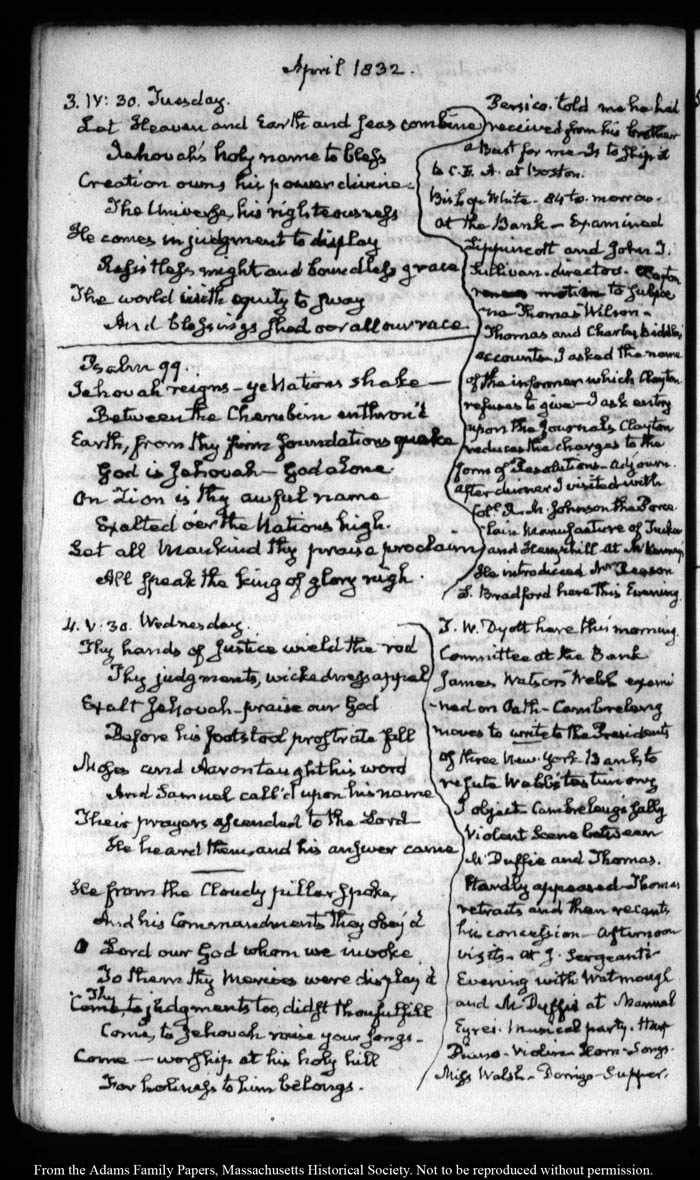 April 1832.
3. IV: 30. Tuesday.
Let Heaven and Earth and Seas combine
Jehovah's holy name to bless
Creation owns his power divine
The Universe, his righteousness
He comes in judgment to display
Resistless might and boundless grace
The world with equity to sway
And blessings shed oer all our race.
Psalm 99.
Jehovah reigns – ye Nations shake —
Between the Cherubim enthron'd
Earth, from thy firm foundations quake
God is Jehovah — God alone
On Zion is thy awful name
Exalted o'er the Nations high.
Let all Mankind thy praise proclaim
All speak the king of glory nigh.
Persico. told me he had
received from his brother
a Bust for me. Is to ship it
to C. F. A. at Boston.
Bishop White – 84 to-morrow.
at the Bank – Examined
Lippincott and John T.
Sullivan – directors. Clayton
motion to subpoe
-na Thomas Wilson –
Thomas and Charles Biddle's
accounts, I asked the name
of the informer which Clayton
refuses to give – I ask entry
upon the Journals Clayton
reduces the charges to the
form of Resolutions – Adjourn.
After dinner I visited with
Coll. R. M. Johnson the Porce
-lain Manufacture of Tucker
and Hemphill at
He introduced Mr Beeson
S. Bradford here this Evening.
4. V: 30. Wednesday.
Thy hands of Justice wield the rod
Thy judgments, wickedness appal
Exalt Jehovah – praise our God
Before his footstool prostrate fall
Moses and Aaron taught his word
And Samuel call'd upon his name
Their prayers ascended to the Lord
He heard them, and his answer came
He from the Cloudy pillar spoke,
And his Commandments they obey'd
O Lord our God whom we invoke
To them thy Mercies were display'd
Thy judgments too, didst thou fulfill
Come, to Jehovah raise your songs –
Come — worship at his holy hill
For holiness to him belongs.
T. W. Dyott here this morning.
Committee at the Bank
James Watson Webb exami
-ned on Oath – Cambreleng
moves to write to the Presidents
of three New-York Banks, to
refute Webb's testimony
I object Cambreleng's folly
Violent Scene between
McDuffie and Thomas.
Hardly appeased – Thomas
retracts and then recants
his concession – Afternoon
visits – at J. Sergeant's
Evening with Watmough
and McDuffie at Manuel
Eyre's. Musical party. Harp
Piano – Violin – Horn – Songs.
Miss Walsh – Dorrigo – Supper.
From the Adams Family Papers, Massachusetts Historical Society. Not to be reproduced without permission.